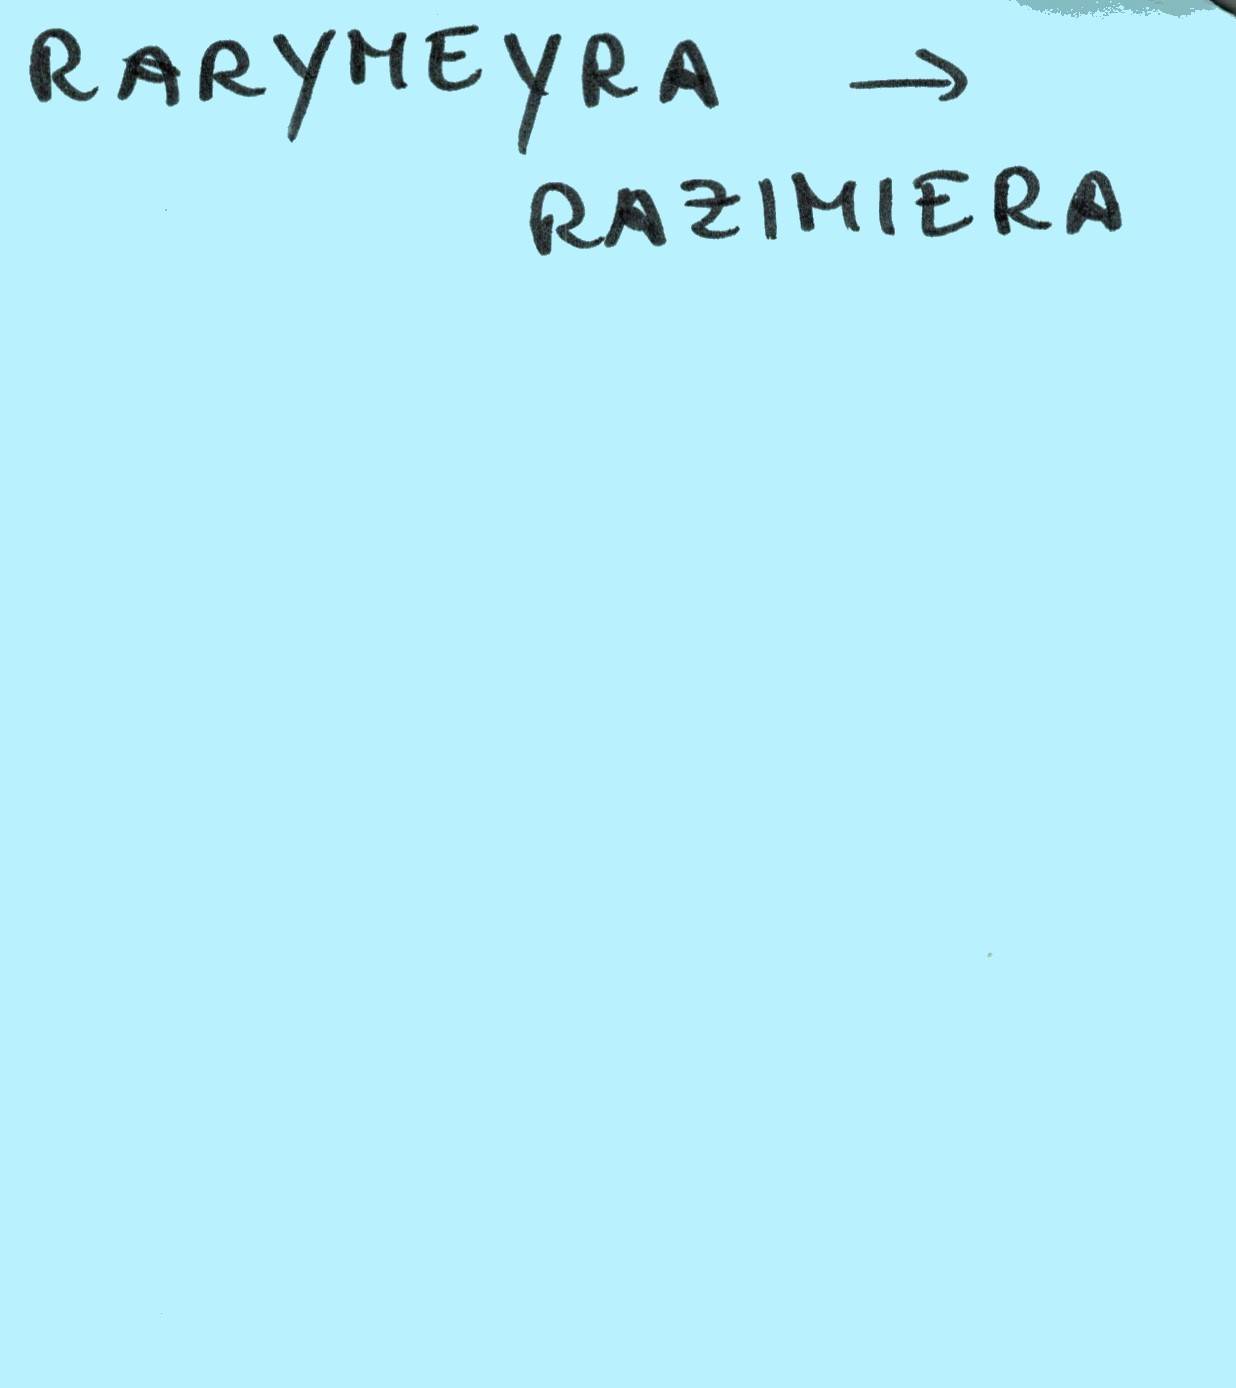 RARYMEYRA →
RAZIMIERA